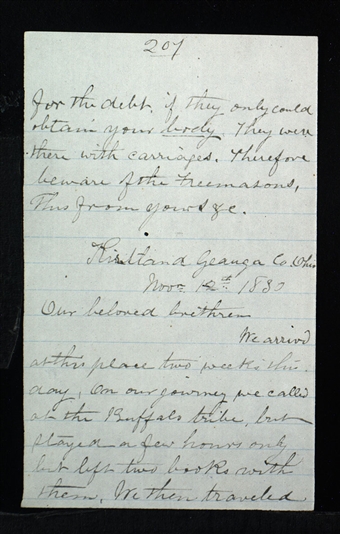 207
for the debt, if they only could
obtain your body. They were
there with carriages. Therefore
beware of the Freemasons,
This from yours &c.
Kirtland Geauga Co. Ohio
Nov. 12th 1830
Our beloved brethren
We arrivd
at this place two weeks this
day, On our journey we called
at the Buffalo tribe, but
stayed a few hours only,
but left two books with
them. We then traveled